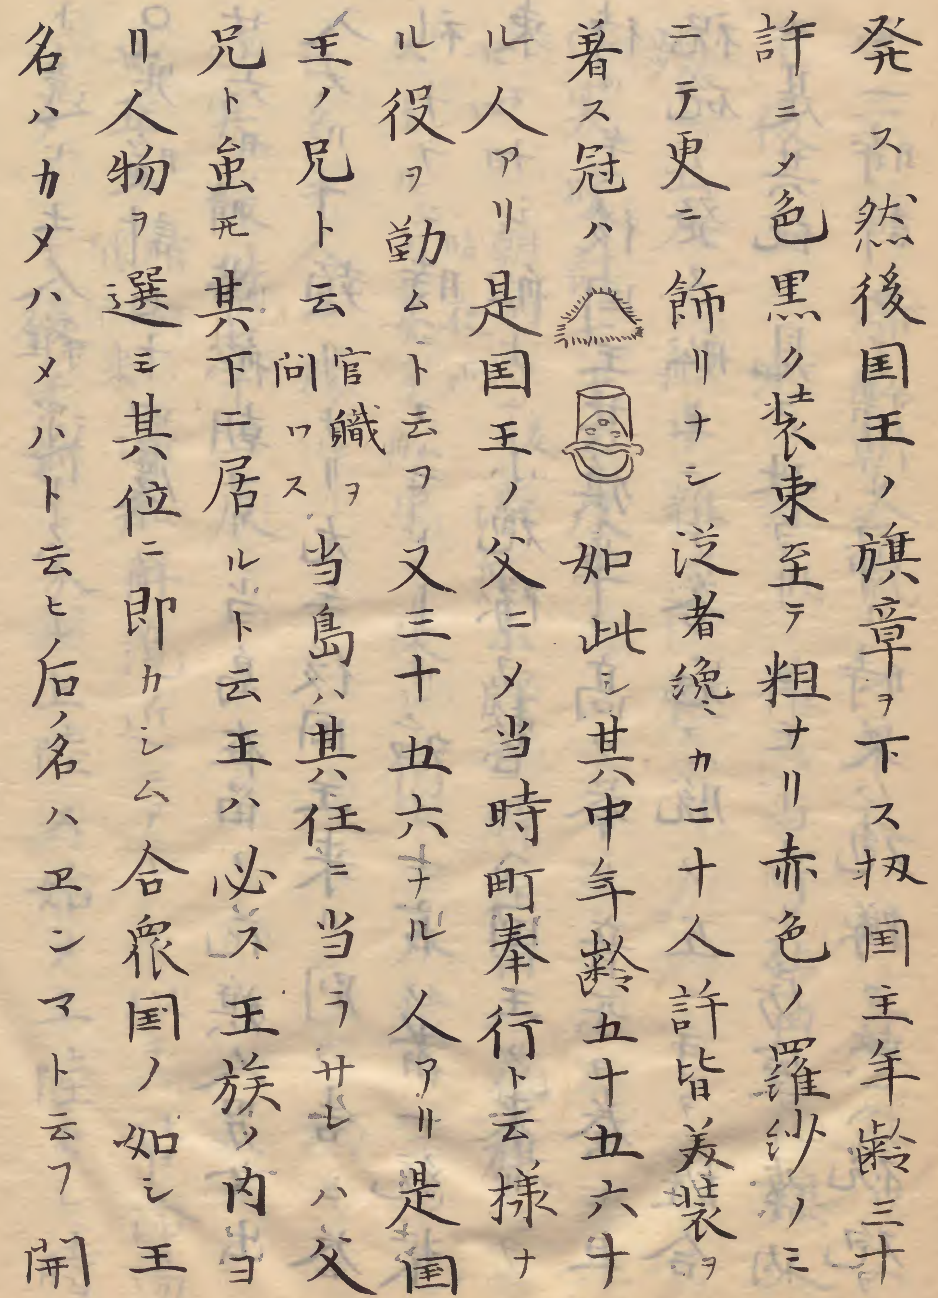 発ス然後国王ノ旗章ヲ下ス扨国主年齢三十
許ニメ色黒ク装束至テ粗ナリ赤色ノ羅紗ノミ
ニテ更ニ飾リナシ従者纔ニカニ十人許皆美装ヲ
着ス冠ハ如此シ其中年齢五十五六十
ル人アリ是国王ノ父ニメ当時町奉行ト云様ナ
ル役ヲ勤ムト云フ又三十五六ナル人アリ是国
王ノ兄ト云官職ヲ問ワス当島ハ其任ニ当ラサレハ父
兄ト虽モ其下ニ居ルト云王ハ必ス王族ノ内ヨ
リ人物ヲ選ミ其位ニ即カシム合衆国ノ如シ王
名ハカメハメハト云ヒ后ノ名ハヱンマト云フ開